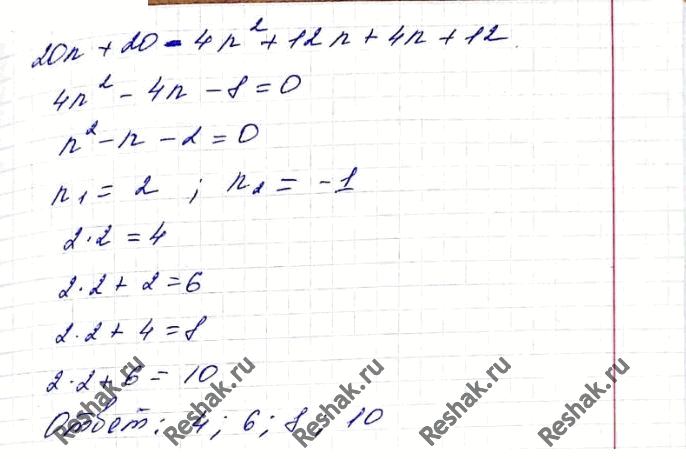 20n + 20 - 4n² + 12n + 4n + 12
4n² - 4n - 8 = 0
n² - n - 2 = 0
n₁ = 2 ; n₂ = -1
2·2 = 4
2·2 + 2 = 6
2·2 + 4 = 8
2·2 + 6 = 10
Ответ: 4; 6; 8; 10
Reshak.ru Reshak.ru Reshak.ru Reshak.ru Reshak.ru